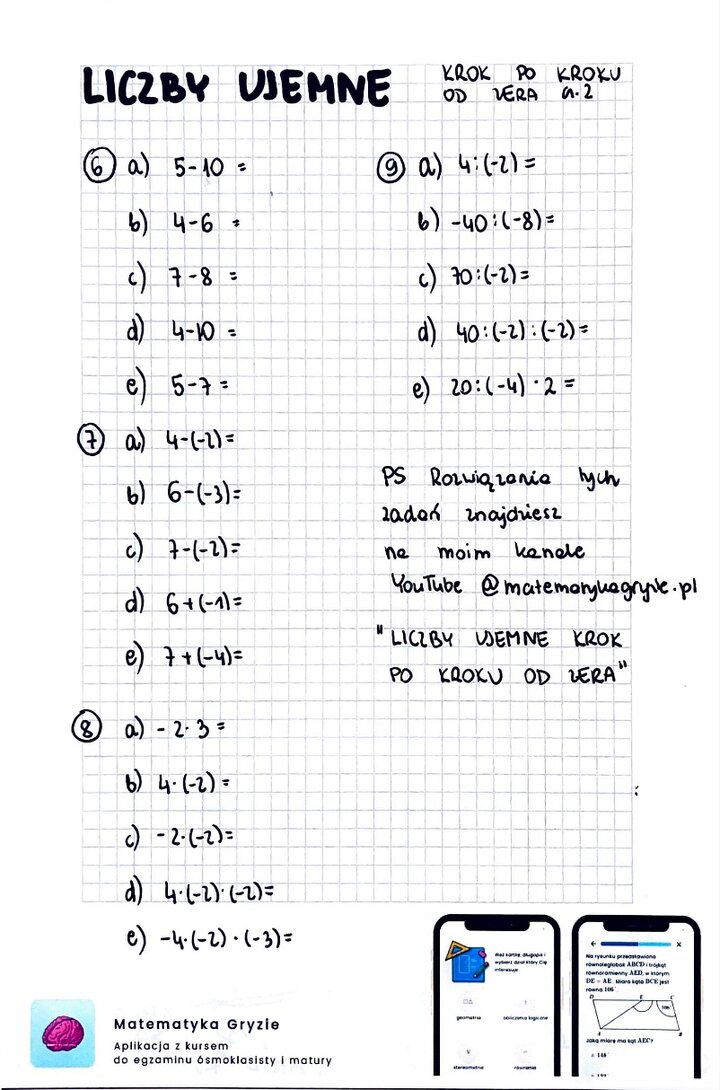 LICZBY UJEMNE
KROK PO KROKU
OD ZERA cz.2
6 a) 5-10 =
b) 4-6 =
c) 7-8 =
d) 4-10 =
e) 5-7 =
7 a) 4-(-2)=
b) 6-(-3)=
c) 7-(-2)=
d) 6+(-1)=
e) 7+(-4)=
8 a) -2·3 =
b) 4·(-2) =
c) -2·(-2)=
d) 4·(-2)·(-2)=
e) -4·(-2)·(-3)=
9 a) 4:(-2)=
b) -40:(-8)=
c) 70:(-2)=
d) 40:(-2):(-2)=
e) 20:(-4)·2 =
PS Rozwiązania tych
zadań znajdziesz
na moim kanale
YouTube @matematykagryzie.pl
"LICZBY UJEMNE KROK
PO KROKU OD ZERA"
Matematyka Gryzie
Aplikacja z kursem
do egzaminu ósmoklasisty i matury
Weź kartkę, długopis i
wybierz dział który Cię
interesuje
geometria
obliczenia logiczne
stereometria
równania
Na rysunku przedstawiono
równoległobok ABCD i trójkąt
równoramienny AED, w którym
DE = AE. Miara kąta BCE jest
równa 106°.
D E C
106°
A B
Jaką miarę ma kąt AEC?
A. 148°